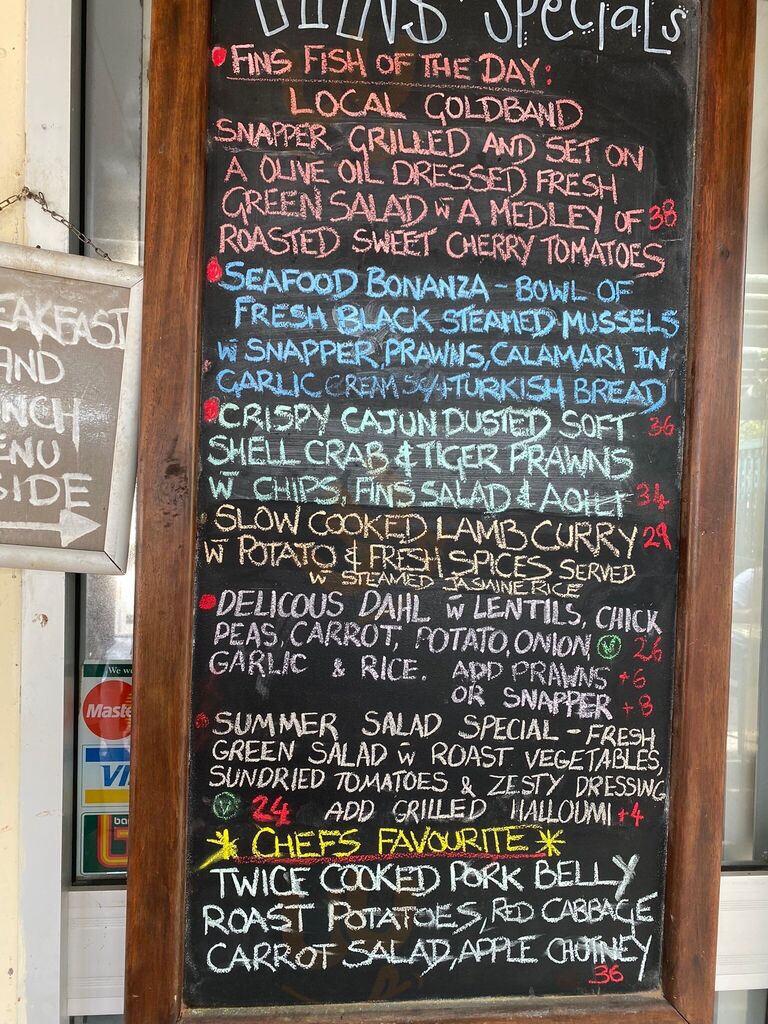 FINS Specials
FINS FISH OF THE DAY:
LOCAL GOLDBAND
SNAPPER GRILLED AND SET ON
A OLIVE OIL DRESSED FRESH
GREEN SALAD w̄ A MEDLEY OF 38
ROASTED SWEET CHERRY TOMATOES
SEAFOOD BONANZA - BOWL OF
FRESH BLACK STEAMED MUSSELS
w̄ SNAPPER, PRAWNS, CALAMARI IN
GARLIC CREAM TURKISH BREAD
CRISPY CAJUN DUSTED SOFT 36
SHELL CRAB & TIGER PRAWNS
w̄ CHIPS, FINS SALAD & AOILI 34
SLOW COOKED LAMB CURRY 29
w̄ POTATO & FRESH SPICES SERVED
w̄ STEAMED JASMINE RICE
DELICOUS DAHL w̄ LENTILS, CHICK
PEAS, CARROT, POTATO, ONION V 26
GARLIC & RICE. ADD PRAWNS +6
OR SNAPPER +8
SUMMER SALAD SPECIAL - FRESH
GREEN SALAD w̄ ROAST VEGETABLES,
SUNDRIED TOMATOES & ZESTY DRESSING
V 24 ADD GRILLED HALLOUMI +4
* CHEFS FAVOURITE *
TWICE COOKED PORK BELLY
ROAST POTATOES, RED CABBAGE
CARROT SALAD, APPLE CHUTNEY
36
EAKFAST
AND
NCH
ENU
SIDE
We we
Maste
VI
ban